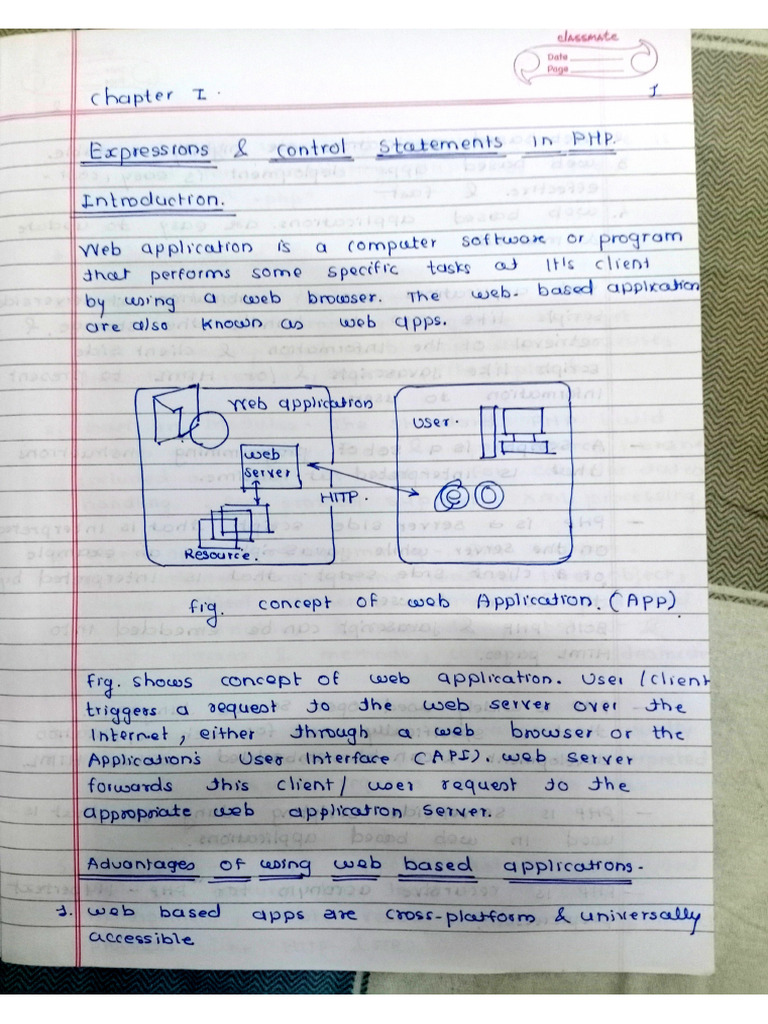 classmate
Date
Page
1
Chapter I.
Expressions & control statements in PHP.
Introduction.
Web application is a computer software or program
that performs some specific tasks at it's client
by using a web browser. The web-based application
are also known as web apps.
Web application
User.
web
server
HTTP.
Resource.
fig. concept of web Application. (APP)
Fig. shows concept of web application. User / client
triggers a request to the web server over the
Internet, either through a web browser or the
Application's User Interface (API). web server
forwards this client / user request to the
appropriate web application server.
Advantages of using web based applications.
1. web based apps are cross-platform & universally
accessible